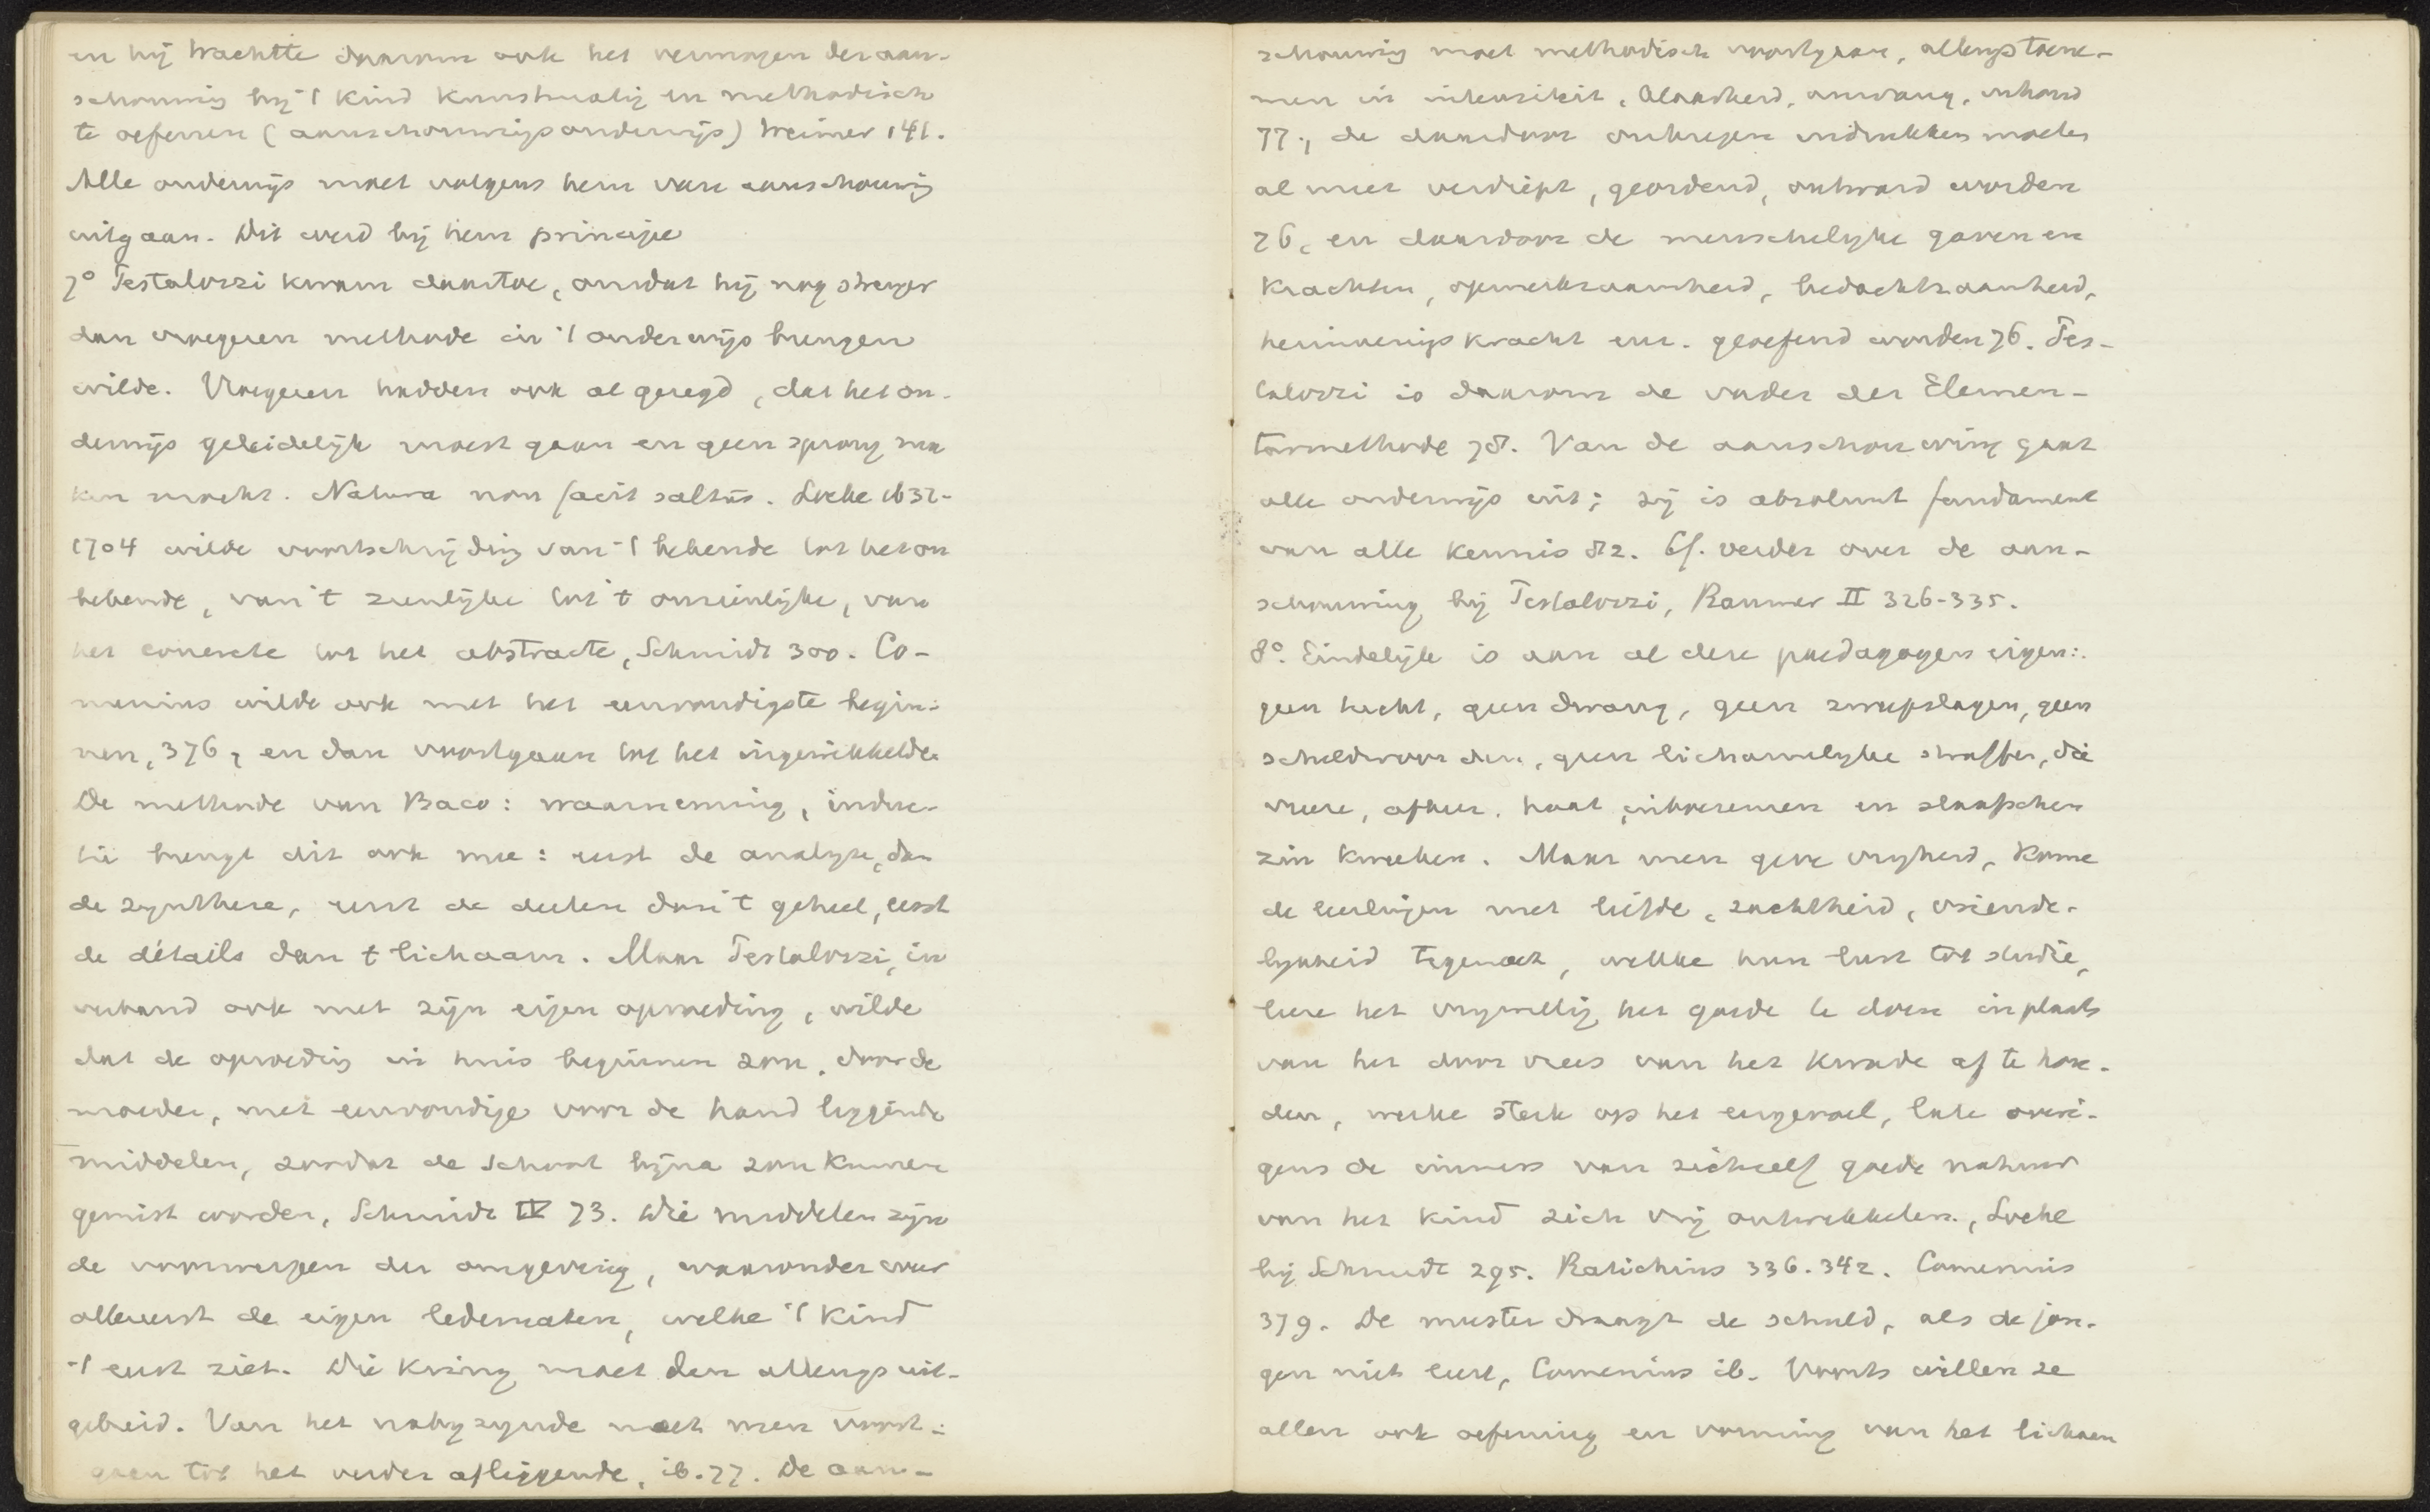 en hij trachtte daarom ook het vermogen der aan-
schouwing bij 't kind kunstmatig en methodisch
te oefenen (aanschouwingsonderwijs) Weimer 141.
Alle onderwijs moet volgens hem van aanschouwing
uitgaan. Dit werd bij hem principe
7° Pestalozzi kwam daartoe, omdat hij nog strenger
dan vroegeren methode in 't onderwijs brengen
wilde. Vroegeren hadden ook al gezegd, dat het on-
derwijs geleidelijk moest gaan en geen sprong ma
ken mocht. Natura non facit saltus. Locke 1632-
1704 wilde voortschrijding van 't bekende tot het on
bekende, van 't zienlijke tot 't onzienlijke, van
het concrete tot het abstracte, Schmidt 300. Co-
menius wilde ook met het eenvoudigste begin-
nen, 376, en dan voortgaan tot het ingewikkelde.
De methode van Baco: waarneming, induc-
tie brengt dit ook mee: eerst de analyse, dan
de synthese, eerst de deelen dan 't geheel, eerst
de détails dan t lichaam. Maar Pestalozzi, in
verband ook met zijn eigen opvoeding, wilde
dat de opvoeding in huis beginnen zou, door de
moeder, met eenvoudige voor de hand liggende
middelen, zoodat de school bijna zou kunnen
gemist worden, Schmidt IV 73. Die middelen zijn
de voorwerpen der omgeving, waaronder weer
allereerst de eigen ledematen, welke 't kind
't eerst ziet. Die kring moet dan allengs uit-
gebreid. Van het nabij zijnde moet men voort-
gaan tot het verder afliggende, ib. 77. De aan-
schouwing moet methodisch voortgaan, allengs toene-
men in intensiteit, klaarheid, omvang, inhoud
77, de daardoor verkregen indrukken moeten
al meer verdiept, geordend, ontward worden
76, en daardoor de menschelijke gaven en
krachten, opmerkzaamheid, bedachtzaamheid,
herinneringskracht enz. geoefend worden 76. Pes-
talozzi is daarom de vader der Elemen-
tarmethode 78. Van de aanschouwing gaat
alle onderwijs uit; zij is absoluut fundament
van alle kennis 82. Cf. verder over de aan-
schouwing bij Pestalozzi, Raumer II 326-335.
8°. Eindelijk is aan al deze paedagogen eigen:
geen tucht, geen dwang, geen zweepslagen, geen
scheldwoorden, geen lichamelijke straffen, die
vreeze, afkeer, haat inboezemen en slaafschen
zin kweeken. Maar men geve vrijheid, kome
de leerlingen met liefde, zachtheid, vriende-
lijkheid tegemoet, wekke hun lust tot studie,
leere het vrijwillig het goede te doen in plaats
van het door vrees van het kwade af te hou-
den, werke sterk op het eergevoel, late overi-
gens de immers van zichzelf goede natuur
van het kind zich vrij ontwikkelen, Locke
bij Schmidt 295. Ratichius 336. 342. Comenius
379. De meester draagt de schuld, als de jon-
gen niet leert, Comenius ib. Voorts willen ze
allen ook oefening en vorming van het lichaam